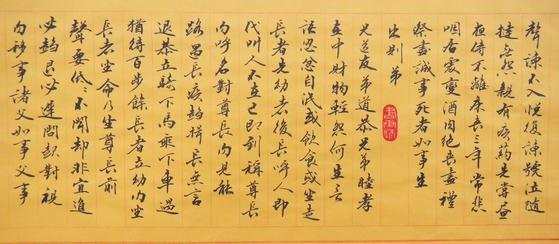 聲諫不入悅復諫號泣隨
撻無怨親有疾藥先嘗晝
夜侍不離床喪三年常悲
咽居處變酒肉絕喪盡禮
祭盡誠事死者如事生
出則弟
兄道友弟道恭兄弟睦孝
在中財物輕怨何生言
語忍忿自泯或飲食或坐走
長者先幼者後長呼人即
代叫人不在己即到稱尊長
勿呼名對尊長勿見能
路遇長疾趨揖長無言
退恭立騎下馬乘下車過
猶待百步餘長者立幼勿坐
長者坐命乃坐尊長前
聲要低低不聞却非宜進
必趨退必遲問起對視
勿移事諸父如事父事